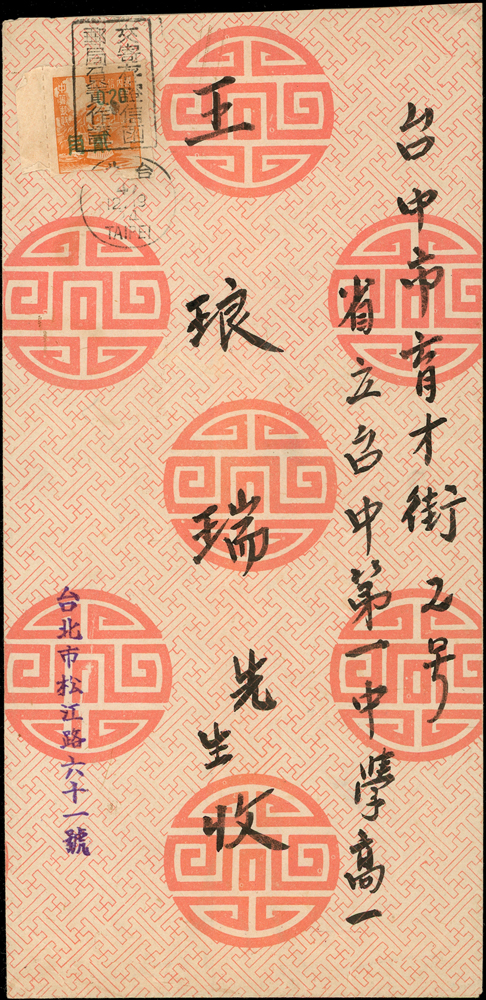 台中市育才街2号
省立台中第一中學高一
王琅瑞先生收
台北市松江路六十一號
台
TAIPEI